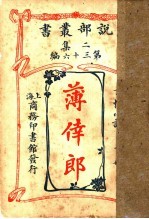 說部叢書
二集
第三十六編
薄倖郎
上海
商務印書館發行